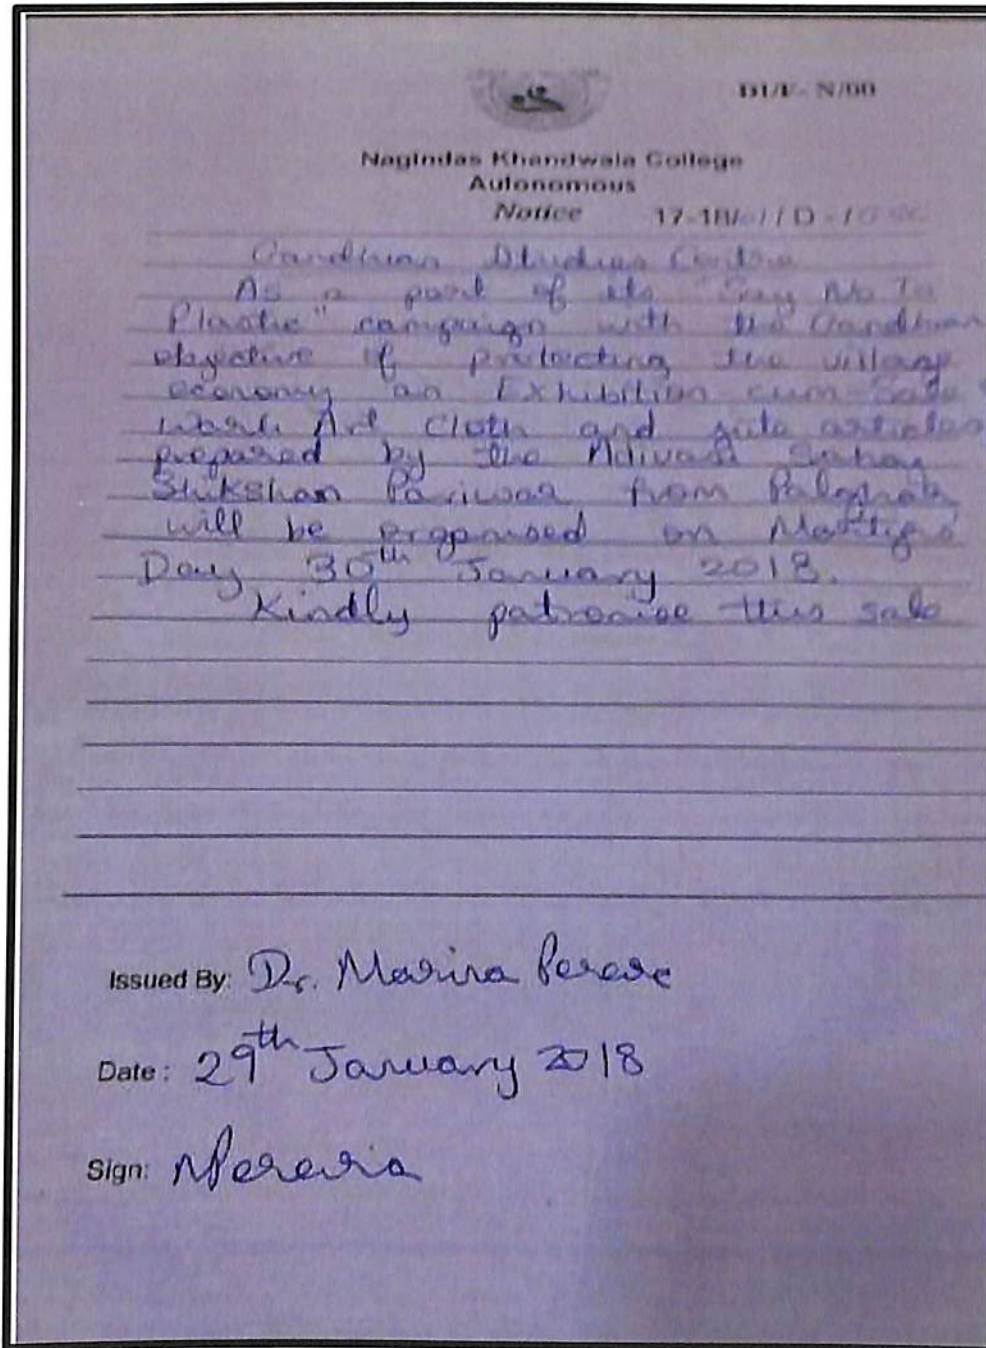 D1/F- N/00
Nagindas Khandwala College
Autonomous
Notice 17-18/
Gandhian Studies Centre
As a part of its "Say No To
Plastic" campaign with the Gandhian
objective of protecting the village
economy an Exhibition cum-Sale
Warli Art Cloth and jute articles
prepared by the Adivasi Sahay
Shikshan Pariwar from Palghar
will be organised on Martyrs'
Day 30th January 2018.
Kindly patronise this sale
Issued By: Dr. Marina Pereira
Date: 29th January 2018
Sign: MPereira